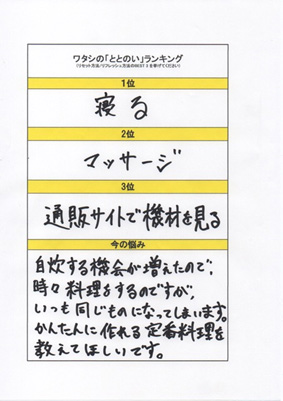 ワタシの「ととのい」ランキング
(リセット方法/リフレッシュ方法のBEST3を挙げてください)
1位
寝る
2位
マッサージ
3位
通販サイトで機材を見る
今の悩み
自炊する機会が増えたので、
時々料理をするのですが、
いっも同じものになってしまいます。
かんたんに作れる定番料理を
教えてほしいです。